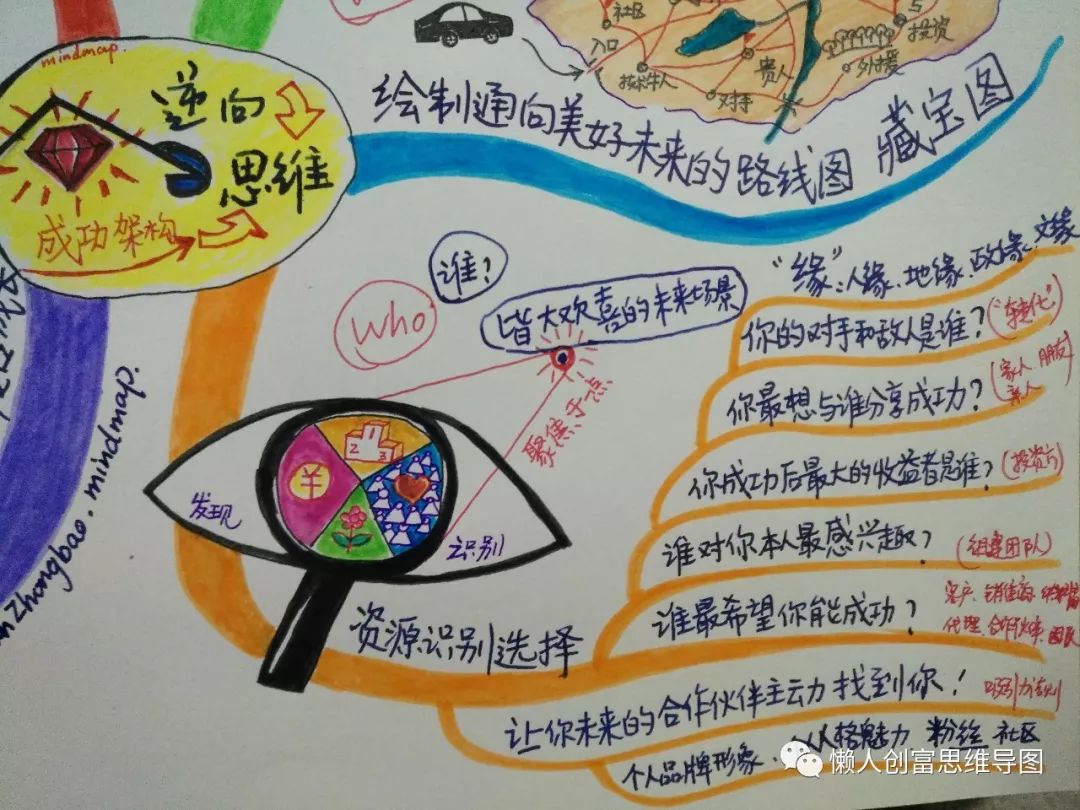 mindmap.
逆向
思维
成功架构
社区
入口
技术牛人
贵人
对手
外援
与
投资
绘制通向美好未来的路线图
藏宝图
谁？
Who
皆大欢喜的未来场景
聚焦于点
发现
识别
¥
1
2
3
资源识别选择
"缘"：人缘、地缘、政缘、
你的对手和敌人是谁？（"转化"）
你最想与谁分享成功？（家人、朋友
亲人
你成功后最大的收益者是谁？（投资方）
谁对你本人最感兴趣？（组建团队）
谁最希望你能成功？
客户、销售商、
代理、合作伙伴、国民
让你未来的合作伙伴主动力找到你！
吸引力法则
个人品牌形象、个人人格魅力 粉丝 社区
Zhongbao. mindmap.
懒人创富思维导图